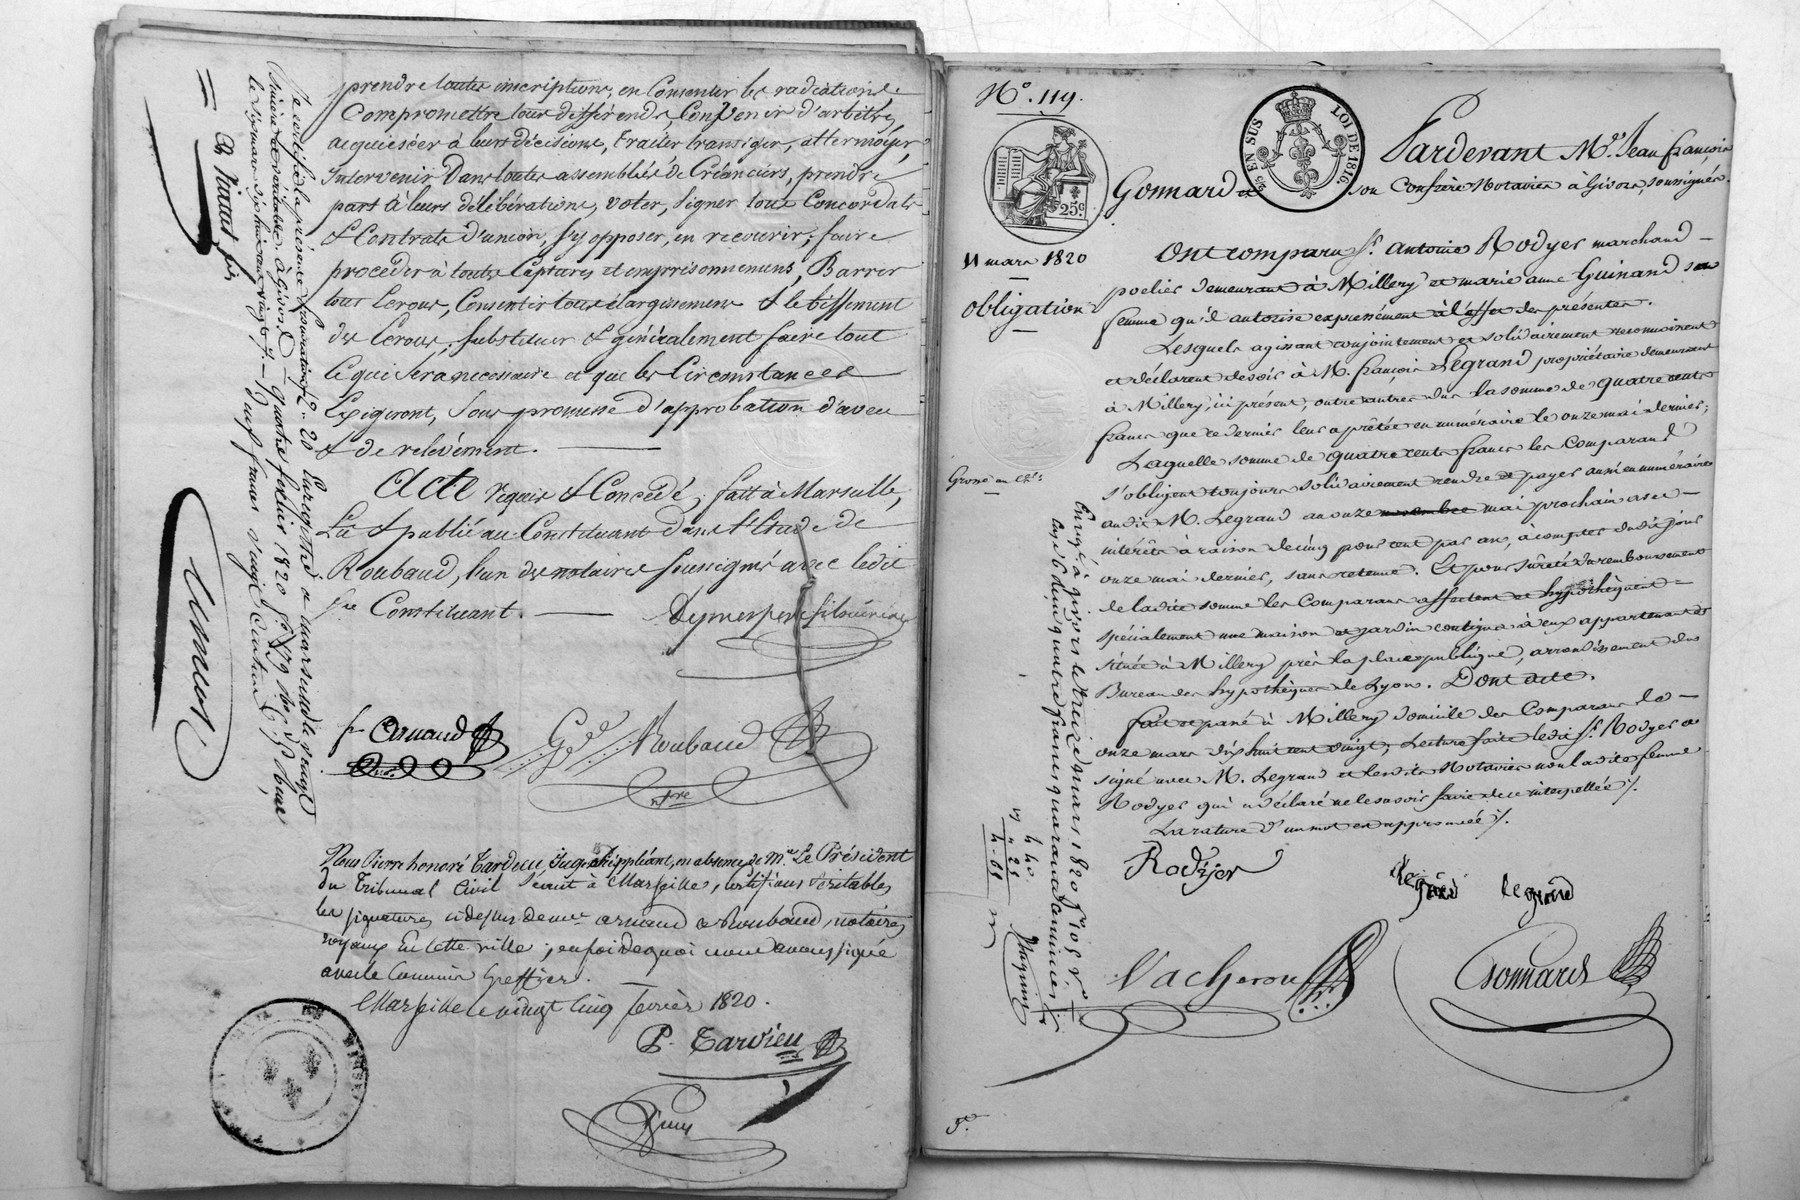 prendre toutes inscriptions, en Consentir les radiations
Compromettre tous différends, Convenir d'arbitres,
acquiescer à leurs décisions, traiter transiger, attermoyer,
intervenir Dans toutes assemblées de Créanciers, prendre
part à leurs délibérations, voter, signer tous Concordats
& Contrats d'union, s'y opposer, en recourir; faire
procéder à toutes Captures et emprisonnemens, Barrer
tous Ecrous, Consentir tous élargissemens & le biffement
des Ecrous, substituer & généralement faire tout
Ce qui Sera necessaire et que les Circonstances
Exigeront, Sous promesse d'approbation d'aveu
& de relevément.
Acte requis & Concédé, fait à Marseille,
Lu & publié au Constituant dans l'Etude de
Roubaud, l'un des notaires soussignés avec ledit
Sr Constituant.
fs Arnaud
Gd Roubaud
ntre
Nous Pierre honoré Tardieu Juge Suppléant, en absence de Mr Le Président
du Tribunal Civil Séant à Marseille, certifions véritables
les signatures ci dessus de mes arnaud & Roubaud, notaires
royaux En cette ville; en foi de quoi nous avons signé
avec le Commis Greffier.
Marseille le vingt cinq fevrier 1820.
P. Tardieu
Je certifie la présente
Enregistré à marseille le vingt
quatre fevrier 1820
deux francs
No. 119.
25 EN SUS
LOI DE 1816.
25c
11 mars 1820
obligation
Grosse en
Pardevant Me Jean françois
Gonnard et son Confrère Notaires à Givors, soussignés.
Ont comparu Sr. antoine Rodyer marchand
poelier demeurant à Millery et marie anne Guinand sa
femme qu'il autorise expressément à l'effet des présentes.
Lesquels agissant conjointement et solidairement reconnaissent
et déclarent devoir à M. françois Legrand propriétaire demeurant
à Millery, ici présent, outre autres dus la somme de quatre cents
francs que ce dernier leur a prêtée en numéraire le onze mai dernier;
Laquelle somme de quatre cents francs les Comparans
s'obligent toujours solidairement rendre et payer aussi en numéraire
audit M. Legrand au onze novembre mai prochain avec
intérêts à raison de cinq pour cent par an, à compter dudit jour
onze mai dernier, sans retenue. Et pour sûreté du remboursement
de ladite somme les Comparans affectent et hypothèquent
spécialement une maison et jardin contigus à eux appartenants
située à Millery près la place publique, arrondissement du
Bureau des hypothèques de Lyon. Dont acte.
fait et passé à Millery domicile des Comparans le
onze mars dix huit cent vingt, Lecture faite ledit Sr. Rodyer a
signé avec M. Legrand et lesdits Notaires non ladite femme
Rodyer qui a déclaré ne le savoir faire de ce interpellée ./.
La rature d'un mot est approuvée ./.
Rodyer
legrand legrand
Vacheron
Gonnard
Enregé à givors le treize mars 1820 fo 105 vo
4 40
" 25
4 - 65